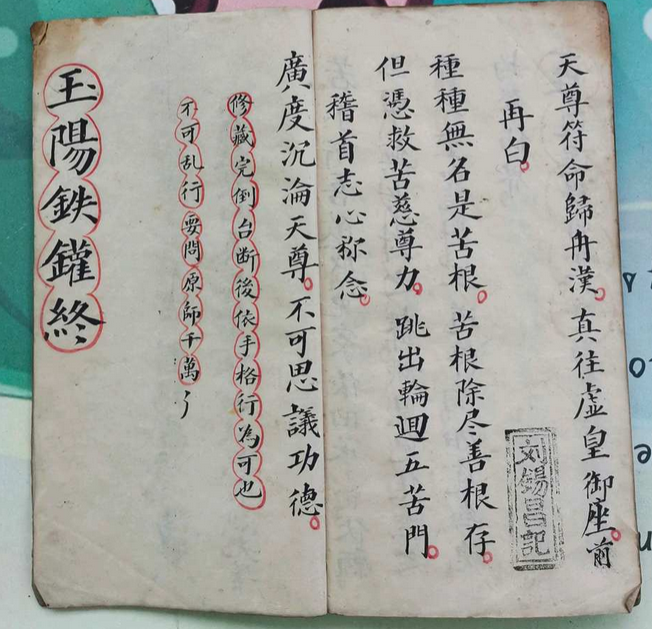 天尊符命歸舟漢。真往虛皇御座。前
再白。
刘錫昌記
種種無名是苦根。苦根除尽善根存。
但憑救苦慈尊力。跳出輪迴五苦門。
稽首志心称念。
廣度沉淪天尊。不可思議功德。
修藏完倒台断後依手格行為可也
不可乱行要問原師千萬
玉陽鉄鑵終